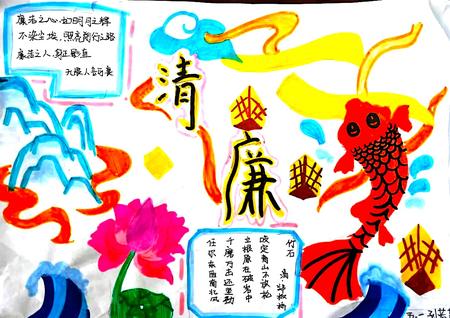 廉洁之心,如明月之辉
不染尘埃,照亮前行之路
廉洁之人,身正影直
清
廉
竹石
清 郑板桥
咬定青山不放松
立根原在破岩中
千磨万击还坚劲
任尔东西南北风